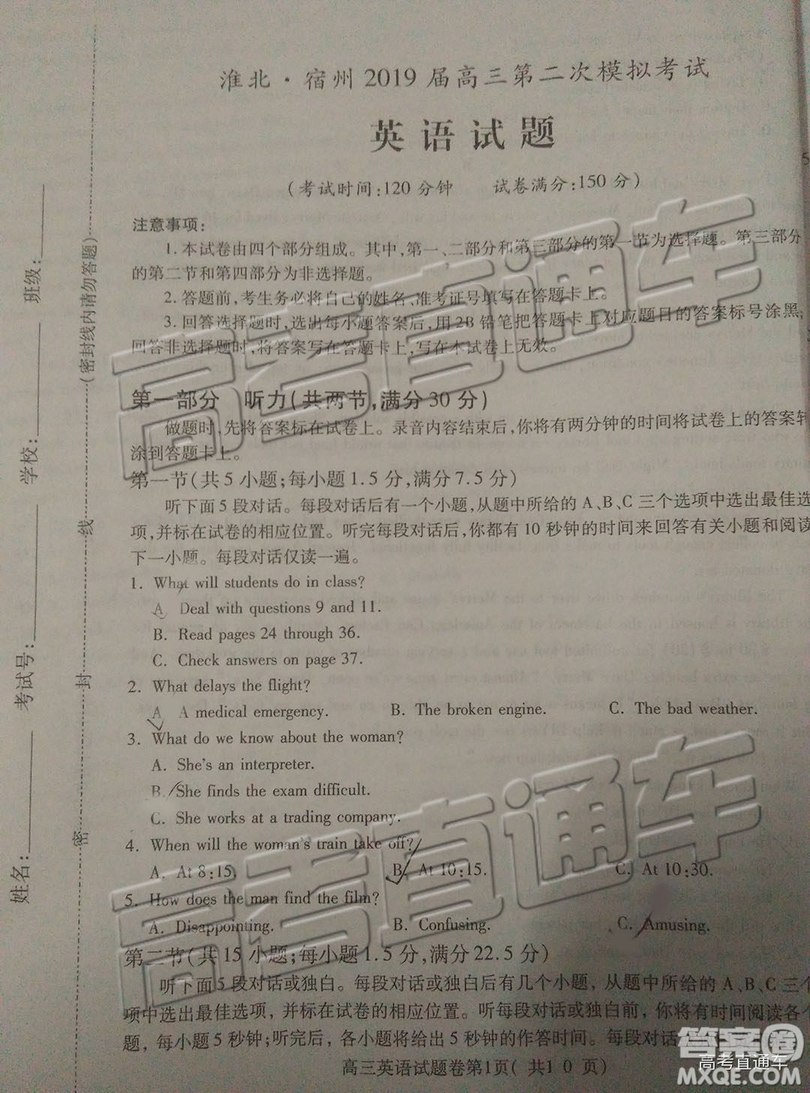 淮北·宿州2019届高三第二次模拟考试
英语试题
(考试时间:120分钟 试卷满分:150分)
注意事项:
1.本试卷由四个部分组成。其中,第一、二部分和第三部分的第一节为选择题。第三部分
的第二节和第四部分为非选择题。
2.答题前,考生务必将自己的姓名、准考证号填写在答题卡上。
3.回答选择题时,选出每小题答案后,用2B铅笔把答题卡上对应题目的答案标号涂黑;
回答非选择题时,将答案写在答题卡上,写在本试卷上无效。
第一部分 听力(共两节,满分30分)
做题时,先将答案标在试卷上。录音内容结束后,你将有两分钟的时间将试卷上的答案转
涂到答题卡上。
第一节(共5小题;每小题1.5分,满分7.5分)
听下面5段对话。每段对话后有一个小题,从题中所给的A、B、C三个选项中选出最佳选
项,并标在试卷的相应位置。听完每段对话后,你都有10秒钟的时间来回答有关小题和阅读
下一小题。每段对话仅读一遍。
1. What will students do in class?
A. Deal with questions 9 and 11.
B. Read pages 24 through 36.
C. Check answers on page 37.
2. What delays the flight?
A. A medical emergency. B. The broken engine. C. The bad weather.
3. What do we know about the woman?
A. She's an interpreter.
B. She finds the exam difficult.
C. She works at a trading company.
4. When will the woman's train take off?
A. At 8:15. B. At 10:15. C. At 10:30.
5. How does the man find the film?
A. Disappointing. B. Confusing. C. Amusing.
第二节(共15小题;每小题1.5分,满分22.5分)
听下面5段对话或独白。每段对话或独白后有几个小题,从题中所给的A、B、C三个
项中选出最佳选项,并标在试卷的相应位置。听每段对话或独白前,你将有时间阅读各个
题,每小题5秒钟;听完后,各小题将给出5秒钟的作答时间。每段对话
高三英语试题卷第1页(共10页)
姓名: 考试号: 学校: 班级:
密 封 线 (密封线内请勿答题)
高考直通车
高考直通车
答案圈
高考直通车
MXQE.COM